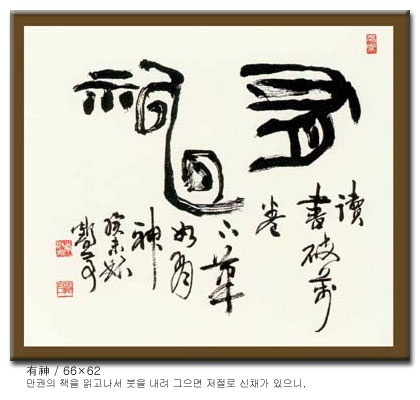 有神
讀
書破萬
卷
下筆
如有
神
癸未秋
有神 / 66×62
만권의 책을 읽고나서 붓을 내려 그으면 저절로 신채가 있으니.